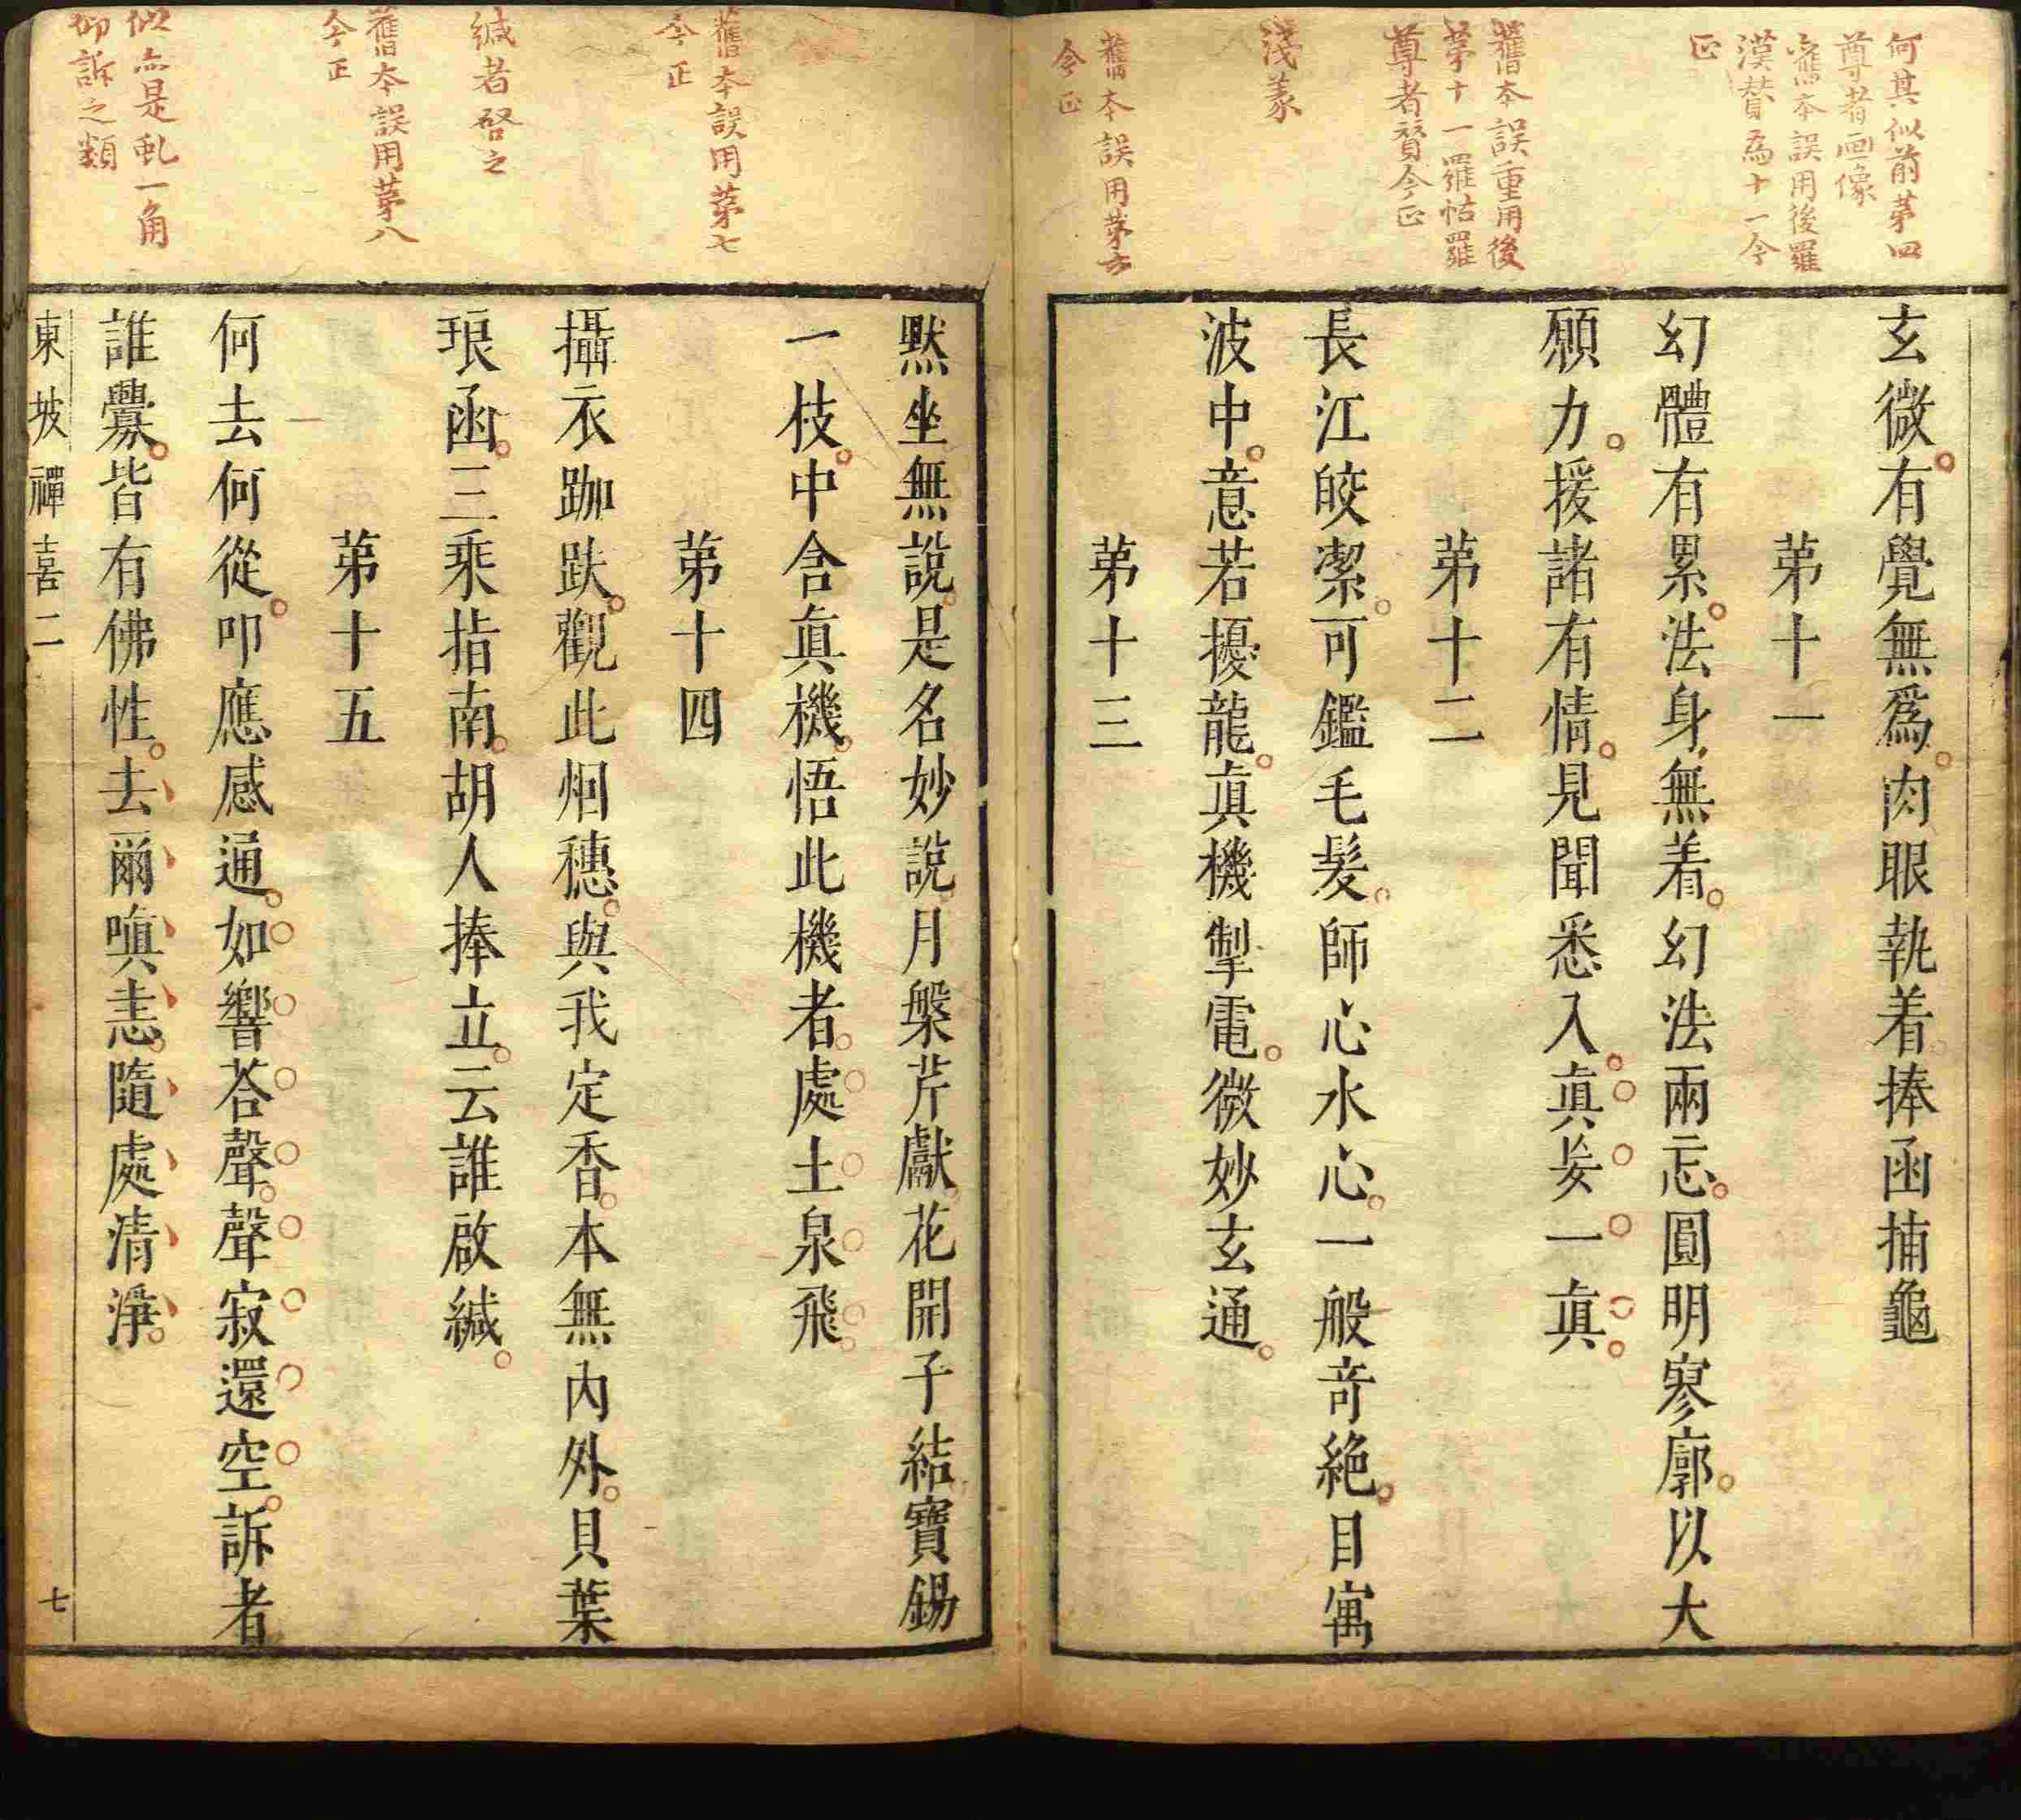 何其似前苐四
尊者画像
舊本誤用後羅
漢賛爲十一今
正
舊本誤重用後
苐十一羅怙羅
尊者賛今正
淺
舊本誤用苐六
今正
玄微有覺無爲肉眼執着捧函捕龜
苐十一
幻體有累法身無着幻法兩忘圓明寥廓以大
願力援諸有情見聞悉入眞妄一眞
苐十二
長江皎潔可鑑毛髮師心水心一般奇絶目寓
波中意若擾龍眞機掣電微妙玄通
苐十三
舊本誤用苐七
今正
緘者啓之
舊本誤用苐八
今正
似亦是虬一角
叩訴之類
默坐無說是名妙說月槃芹獻花開子結寶錫
一枝中含眞機悟此機者處土泉飛
苐十四
攝衣跏趺觀此烟穗與我定香本無內外貝葉
琅函三乘指南胡人捧立云誰啟緘
苐十五
何去何從叩應感通如響荅聲聲寂還空訴者
誰釁皆有佛性去爾嗔恚隨處清淨
東坡禪喜二
七